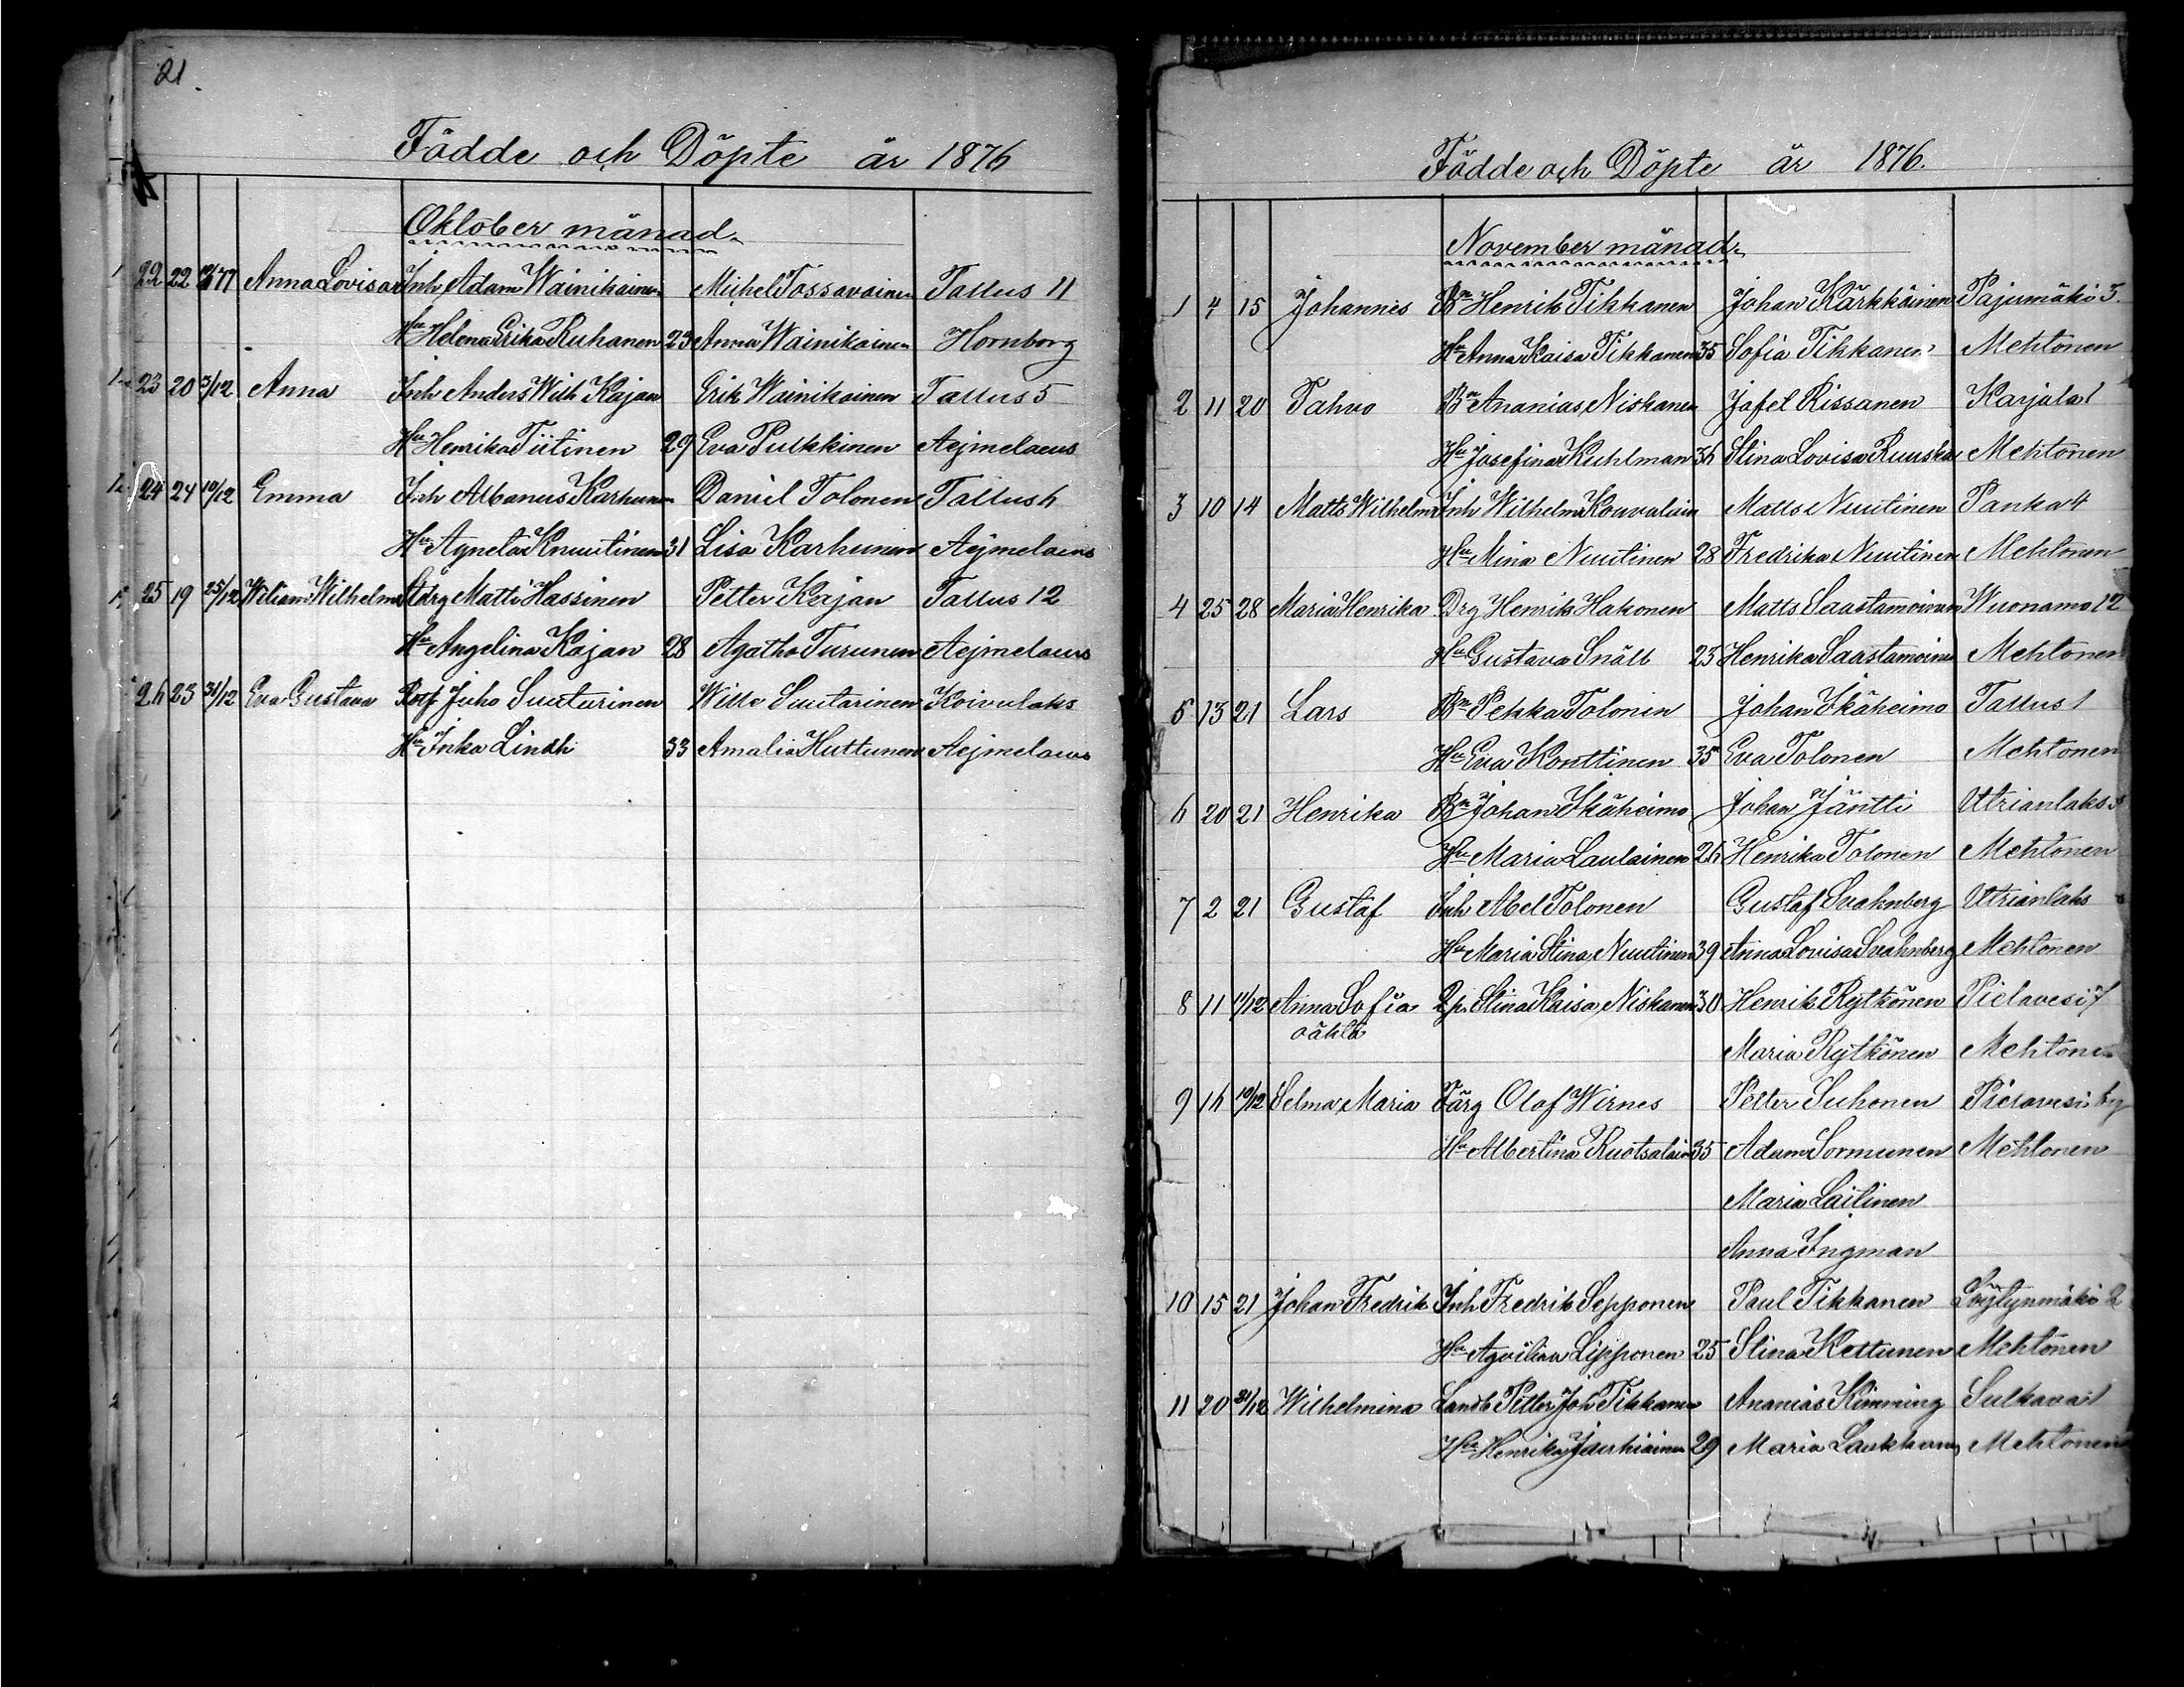 21.
Födde och Döpte år 1876
Oktober månad.
22 22 77 Anna Lovisa Inh Adam Wainikainen Michel Tossavainen Tallus 11
Hu Helena Erika Ruhanen 23 Anna Wainikainen Hornborg
23 20 3/12 Anna Inh Anders Wilh Kajan Erik Wainikainen Tallus 5
Hu Henrika Tiitinen 29 Eva Pulkkinen Aejmelaeus
24 24 10/12 Emma Inh Albanus Karhunen Daniel Tolonen Tallus 6
Hu Agneta Knuutinen 31 Lisa Karhunen Aejmelaeus
25 19 25/12 Wiliam Wilhelm Matti Hassinen Petter Kajan Tallus 12
Hu Angelina Kajan 28 Agatha Turunen Aejmelaeus
26 23 31/12 Eva Gustava Juho Suuturinen Wille Suutarinen Koivulaks
Hu Inka Lindh 33 Amalia Huttunen Aejmelaeus
Födde och Döpte år 1876.
November månad.
1 4 15 Johannes Bn Henrik Tikkanen Johan Kärkkäinen Pajumäki 3.
Hu Anna Kaisa Tikkanen 35 Sofia Tikkanen Mehtonen
2 11 20 Tahvo Bn Ananias Niskanen Jafet Rissanen Karjala 1
Hu Josefina Kuhlman 36 Stina Lovisa Ruuska Mehtonen
3 10 14 Matts Wilhelm Inh Wilhelm Kouvalain Matts Nuutinen Panka 4
Hu Mina Nuutinen 28 Fredrika Nuutinen Mehtonen
4 25 28 Maria Henrika Drg Henrik Hakonen Matts Saastamoinen Wuonamo 12
Hu Gustava Snäll 23 Henrika Saastamoinen Mehtonen
5 13 21 Lars Bn Pekka Tolonin Johan Ikäheimo Tallus 1
Hu Eva Konttinen 35 Eva Tolonen Mehtonen
6 20 21 Henrika Bn Johan Ikäheimo Johan Jäntti Utrianlaks 5
Hu Maria Laulainen 26 Henrika Tolonen Mehtonen
7 2 21 Gustaf Inh Abel Tolonen Gustaf Svahnberg Utrianlaks
Hu Maria Stina Nuutinen 39 Anna Lovisa Svahnberg Mehtonen
8 11 11/12 Anna Sofia Stina Kaisa Niskanen 30 Henrik Rytkönen Pielavesi 7
oäkta
Maria Rytkönen Mehtonen
9 16 10/12 Selma Maria Färg Olof Wirnes Petter Suhonen Pielavesi by
Hu Albertina Ruotsalain 35 Adam Sormunen Mehtonen
Maria Lailinen
Anna Ingman
10 15 21 Johan Fredrik Inh Fredrik Sepponen Paul Tikkanen Löytynmäki 2
Hu Agvilina Lipponen 25 Stina Kettunen Mehtonen
11 20 31/12 Wilhelmina Landb Petter Joh Tikkanen Ananias Kimming Sulkava 1
Hu Henrika Jauhiainen 29 Maria Laukkanen Mehtonen